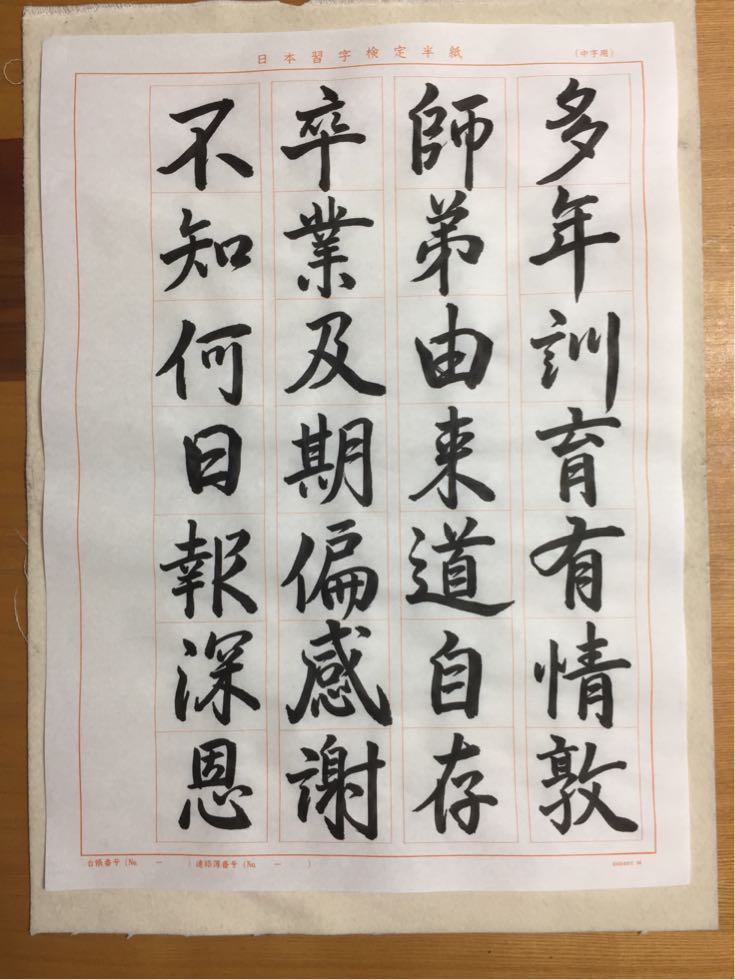 日本習字検定半紙
(中字用)
多年訓育有情敦
師弟由来道自存
卒業及期偏感謝
不知何日報深恩
台帳番号(No. － ) 連絡簿番号(No. － )